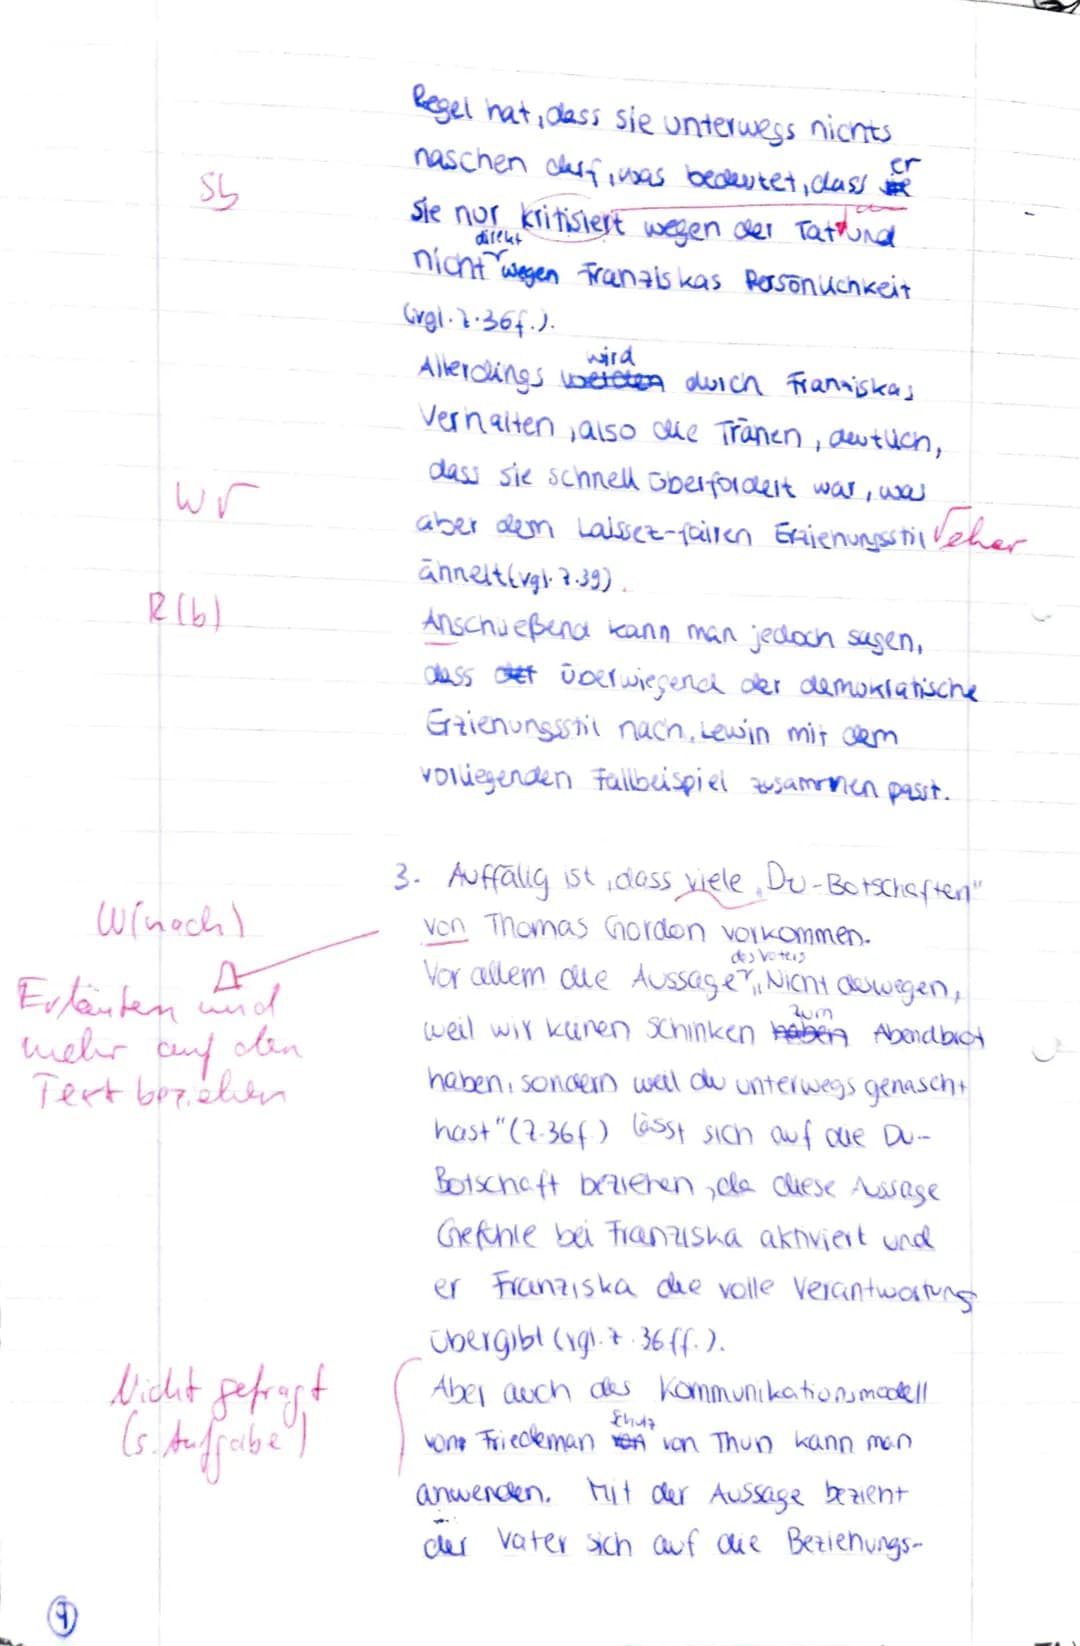 Regel hat, dass sie unterwegs nichts
naschen darf, was bedeutet, dass er
Sb
sie nur kritisiert wegen der Tat und
nicht direkt wegen Franziskas Persönlichkeit
(vgl. Z. 36f.).
Allerdings wird durch Franziskas
Verhalten, also die Tränen, deutlich,
dass sie schnell überfordert war, was
W √
aber dem Laissez-fairen Erziehungsstil √eher
ähnelt (vgl. Z. 39).
R (b)
Anschließend kann man jedoch sagen,
dass überwiegend der demokratische
Erziehungsstil nach Lewin mit dem
vorliegenden Fallbeispiel zusammen passt.
3. Auffälig ist, dass viele „Du-Botschaften"
W(nach)
von Thomas Gordon vorkommen.
Vor allem die Aussage des Vaters „Nicht deswegen,
Erläutern und
weil wir keinen Schinken zum Abendbrot
mehr auf den
haben, sondern weil du unterwegs genascht
Text beziehen
hast" (Z. 36f.) lässt sich auf die Du-
Botschaft beziehen, da diese Aussage
Gefühle bei Franziska aktiviert und
er Franziska die volle Verantwortung
übergibt (vgl. Z. 36ff.).
Nicht gefragt
(s. Aufgabe)
Aber auch das Kommunikationsmodell
von Friedeman Schulz von Thun kann man
anwenden. Mit der Aussage bezieht
der Vater sich auf die Beziehungs-